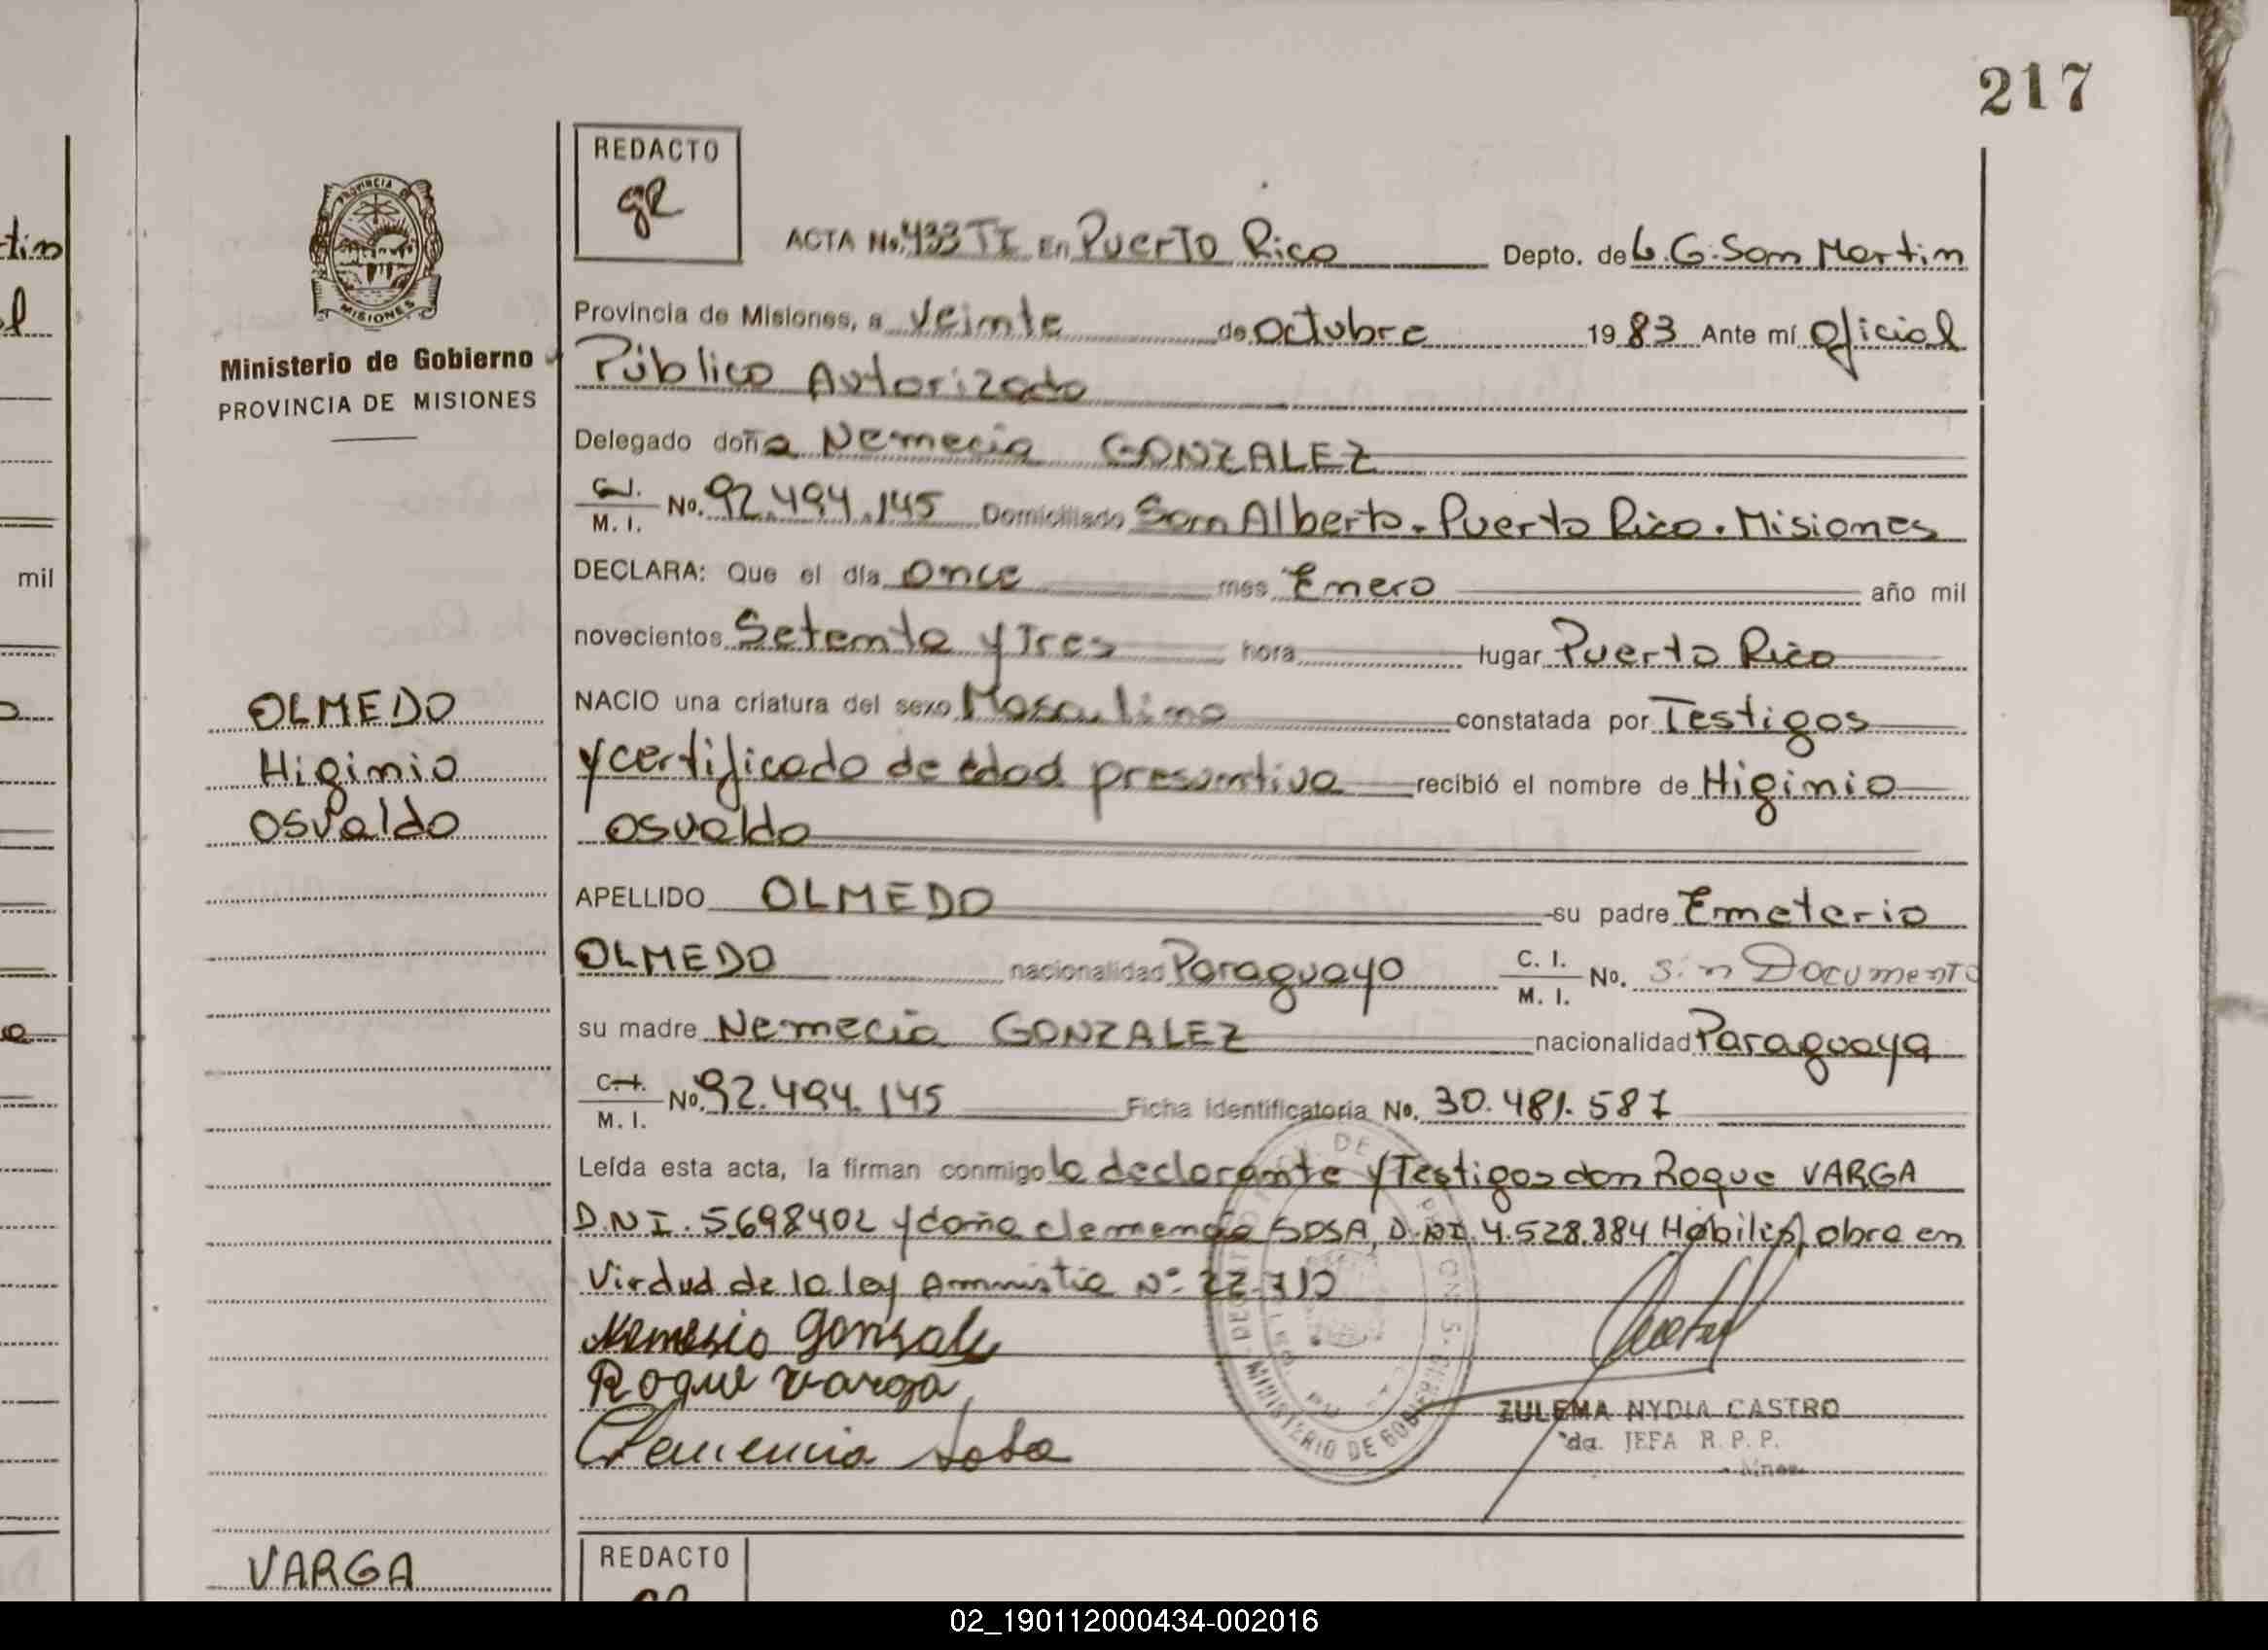 217
REDACTO
gR
PROVINCIA DE
MISIONES
Ministerio de Gobierno
PROVINCIA DE MISIONES
ACTA No. 433 TI En Puerto Rico Depto. de L.G. San Martin
Provincia de Misiones, a Veinte de Octubre 1983 Ante mí Oficial
Público Autorizado
Delegado doña Nemecia GONZALEZ
C.I. M. I. No. 92.494.145 Domiciliado San Alberto. Puerto Rico. Misiones
DECLARA: Que el día Once mes Enero año mil
novecientos Setenta y Tres hora lugar Puerto Rico
NACIO una criatura del sexo Masculino constatada por Testigos
y certificado de edad presuntiva recibió el nombre de Higinio
Osvaldo
APELLIDO OLMEDO su padre Emeterio
OLMEDO nacionalidad Paraguayo C. I. M. I. No. Sin Documento
su madre Nemecia GONZALEZ nacionalidad Paraguaya
C.I. M. I. No. 92.494.145 Ficha identificatoria No. 30.481.587
Leída esta acta, la firman conmigo la declarante y Testigos don Roque VARGA
D.N.I. 5698402 y doña clemencia SOSA, D.NI. 4.528.384 Hábiles, obra en
Virdud de la ley Amnistia Nº 22.710
Nemesia Gonzale
Roque Varga
Clemencia Sosa
MINISTERIO DE GOBIERNO
ZULEMA NYDIA CASTRO
da. JEFA R. P. P.
Mnes.
OLMEDO
Higinio
Osvaldo
VARGA
REDACTO
tin
mil
02_190112000434-002016